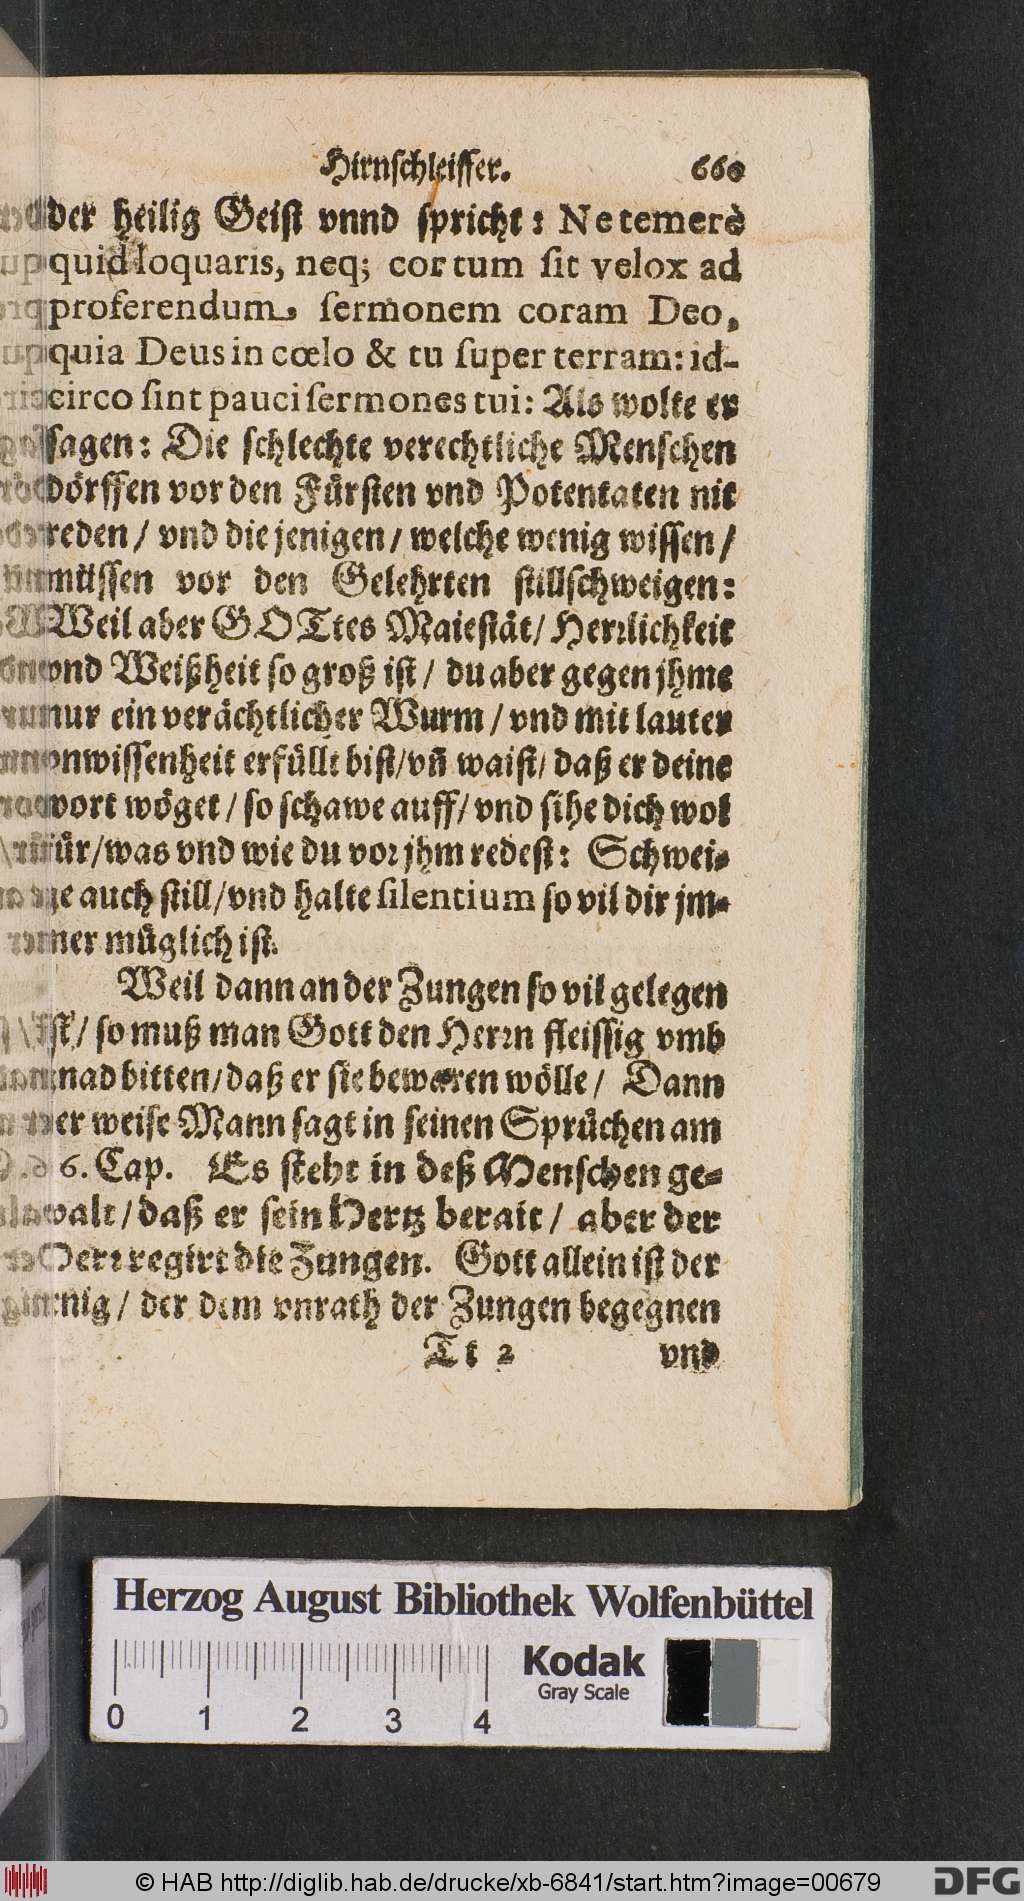 Hirnschleiffer. 660
der heilig Geist vnnd spricht: Ne temerè
quid loquaris, neq; cor tum sit velox ad
proferendum sermonem coram Deo,
quia Deus in cœlo & tu super terram: id-
circo sint pauci sermones tui: Als wolte er
sagen: Die schlechte verechtliche Menschen
dörffen vor den Fürsten vnd Potentaten nit
reden / vnd die jenigen / welche wenig wissen /
müssen vor den Gelehrten stillschweigen:
Weil aber GOTtes Maiestät / Herrlichkeit
vnd Weißheit so groß ist / du aber gegen jhme
nur ein verächtlicher Wurm / vnd mit lauter
vnwissenheit erfüllt bist / vñ waist / daß er deine
wort wöget / so schawe auff / vnd sihe dich wol
für / was vnd wie du vor jhm redest: Schwei-
ge auch still / vnd halte silentium so vil dir jm-
mer müglich ist.
Weil dann an der Zungen so vil gelegen
ist / so muß man Gott den Herrn fleissig vmb
gnad bitten / daß er sie bewaren wölle / Dann
der weise Mann sagt in seinen Sprüchen am
6. Cap. Es steht in deß Menschen ge-
walt / daß er sein Hertz berait / aber der
Herr regirt die Zungen. Gott allein ist der
jenig / der dem vnrath der Zungen begegnen
Tt 2 vnd
Herzog August Bibliothek Wolfenbüttel
Kodak
Gray Scale
0 1 2 3 4
© HAB http://diglib.hab.de/drucke/xb-6841/start.htm?image=00679
DFG